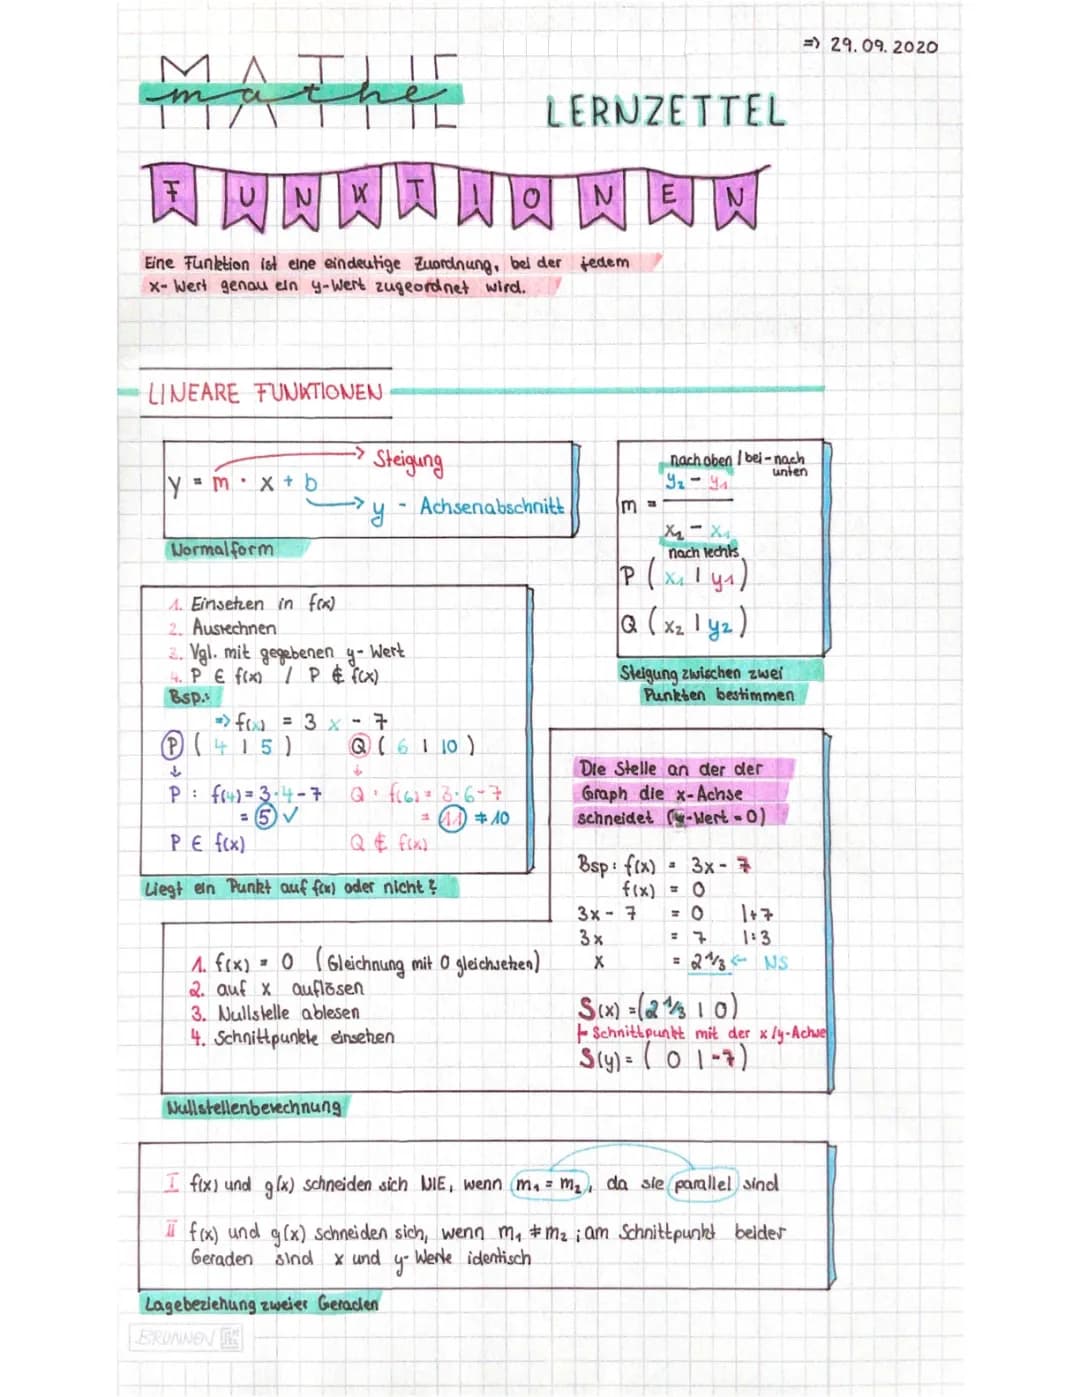 => 29.09.2020
MATHE
mathe
LERNZETTEL
FUNKTIONEN
Eine Funktion ist eine eindeutige Zuordnung, bei der jedem
x-Wert genau ein y-Wert zugeordnet wird.
LINEARE FUNKTIONEN
Steigung
y = m · x + b
y - Achsenabschnitt
Normalform
nach oben / bei - nach
unten
m = y₂ - y₁
x₂ - x₁
nach rechts
P ( x₁ | y₁ )
Q ( x₂ | y₂ )
Steigung zwischen zwei
Punkten bestimmen
1. Einsetzen in f(x)
2. Ausrechnen
3. Vgl. mit gegebenen y-Wert
4. P ∈ f(x) / P ∉ f(x)
Bsp.:
=> f(x) = 3x - 7
P ( 4 | 5 ) Q ( 6 | 10 )
↓ ↓
P : f(4) = 3·4-7 Q : f(6) = 3·6-7
= 5 ✓ = 11 ≠ 10
P ∈ f(x) Q ∉ f(x)
Liegt ein Punkt auf f(x) oder nicht?
Die Stelle an der der
Graph die x-Achse
schneidet (y-Wert = 0)
Bsp: f(x) = 3x - 7
f(x) = 0
3x - 7 = 0 |+7
3x = 7 |:3
x = 2 1/3 ← NS
S(x) = (2 1/3 | 0)
Schnittpunkt mit der x/y-Achse
S(y) = ( 0 | -7)
1. f(x) = 0 (Gleichnung mit 0 gleichsetzen)
2. auf x auflösen
3. Nullstelle ablesen
4. Schnittpunkte einsehen
Nullstellenberechnung
I f(x) und g(x) schneiden sich NIE, wenn m₁ = m₂, da sie parallel sind
II f(x) und g(x) schneiden sich, wenn m₁ ≠ m₂; am Schnittpunkt beider
Geraden sind x und y-Werte identisch
Lagebeziehung zweier Geraden
BRUNNEN